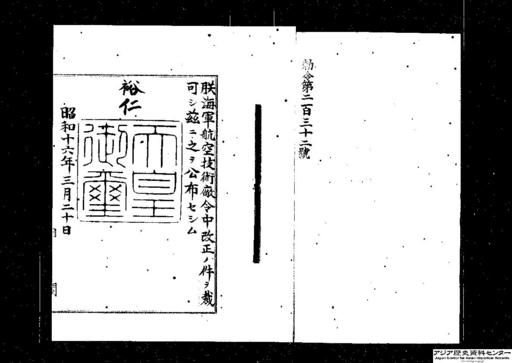 勅令第二百三十二號
朕海軍航空技術廠令中改正ノ件ヲ裁
可シ茲ニ之ヲ公布セシム
裕仁
天皇
御璽
昭和十六年三月二十日
アジア歴史資料センター
Japan Center for Asian Historical Records